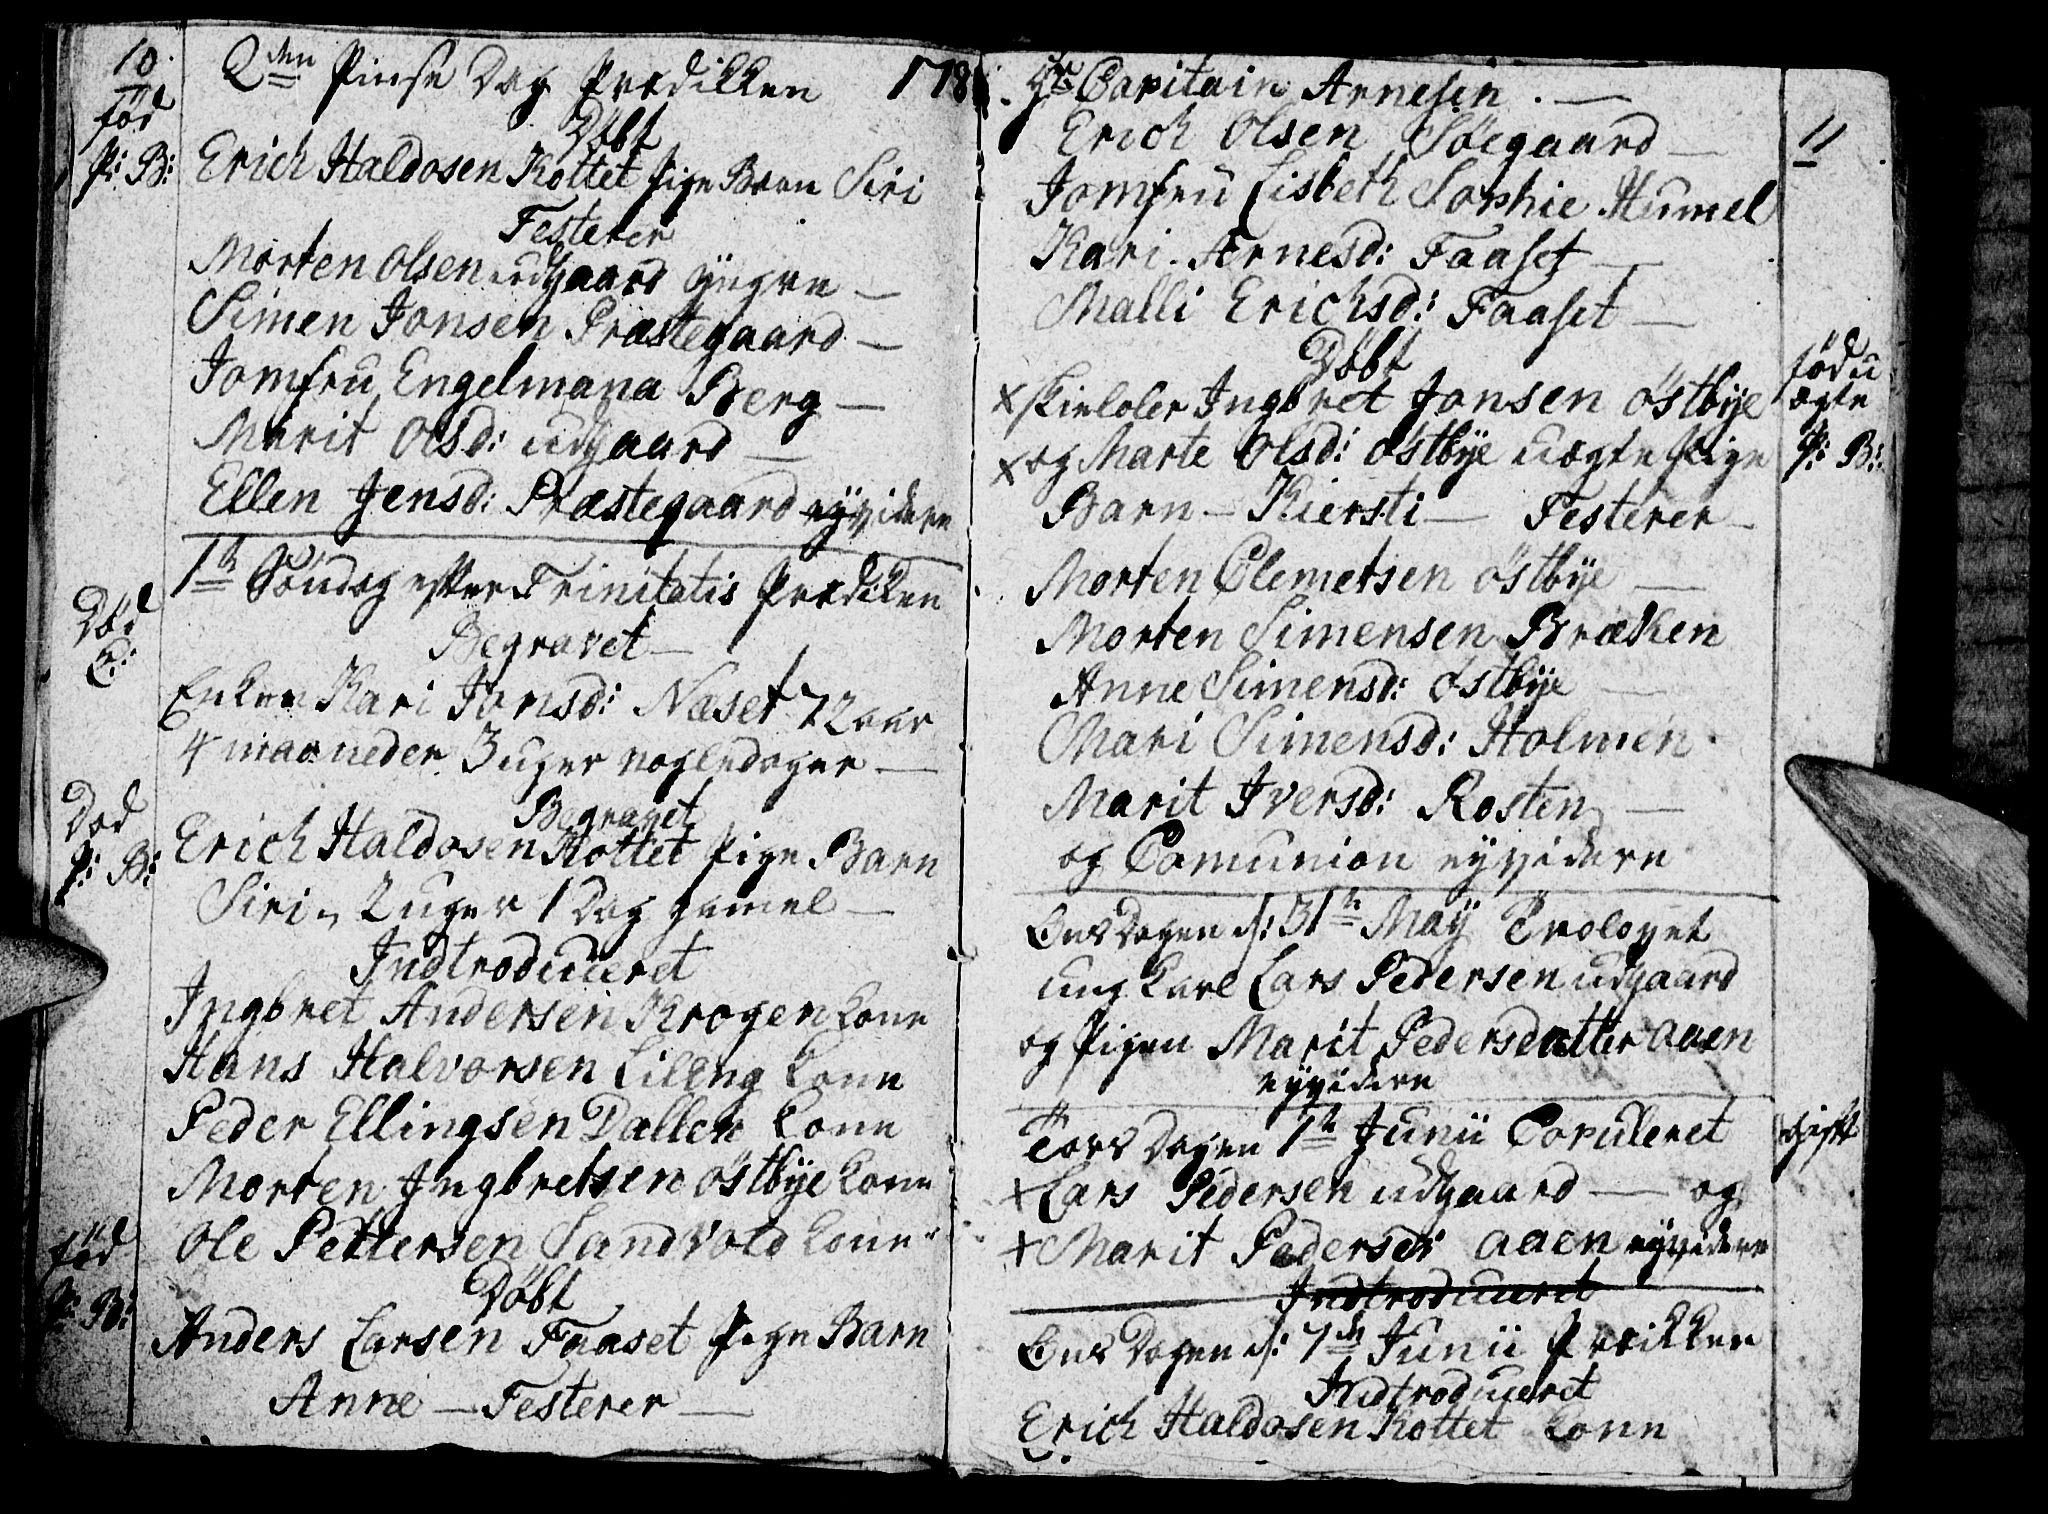 10.
2den Pinse Dag Prædikken 178
Døbt
fød
P: B: Erich Haldosen Kottet Pige Bren Siri
Festerer
Morten Olsen udgaard yngre —
Simen Jonsen Præstegaard —
Jomfru Engelmana Berg —
Marit Olsd: udgaard —
Ellen Jensd: Præstegaard eyvidere
1te Søndag efter Trinitatis Prædiken
Død
E:
Begravet —
Enken Kari Jonsd: Næset 72 aar
4 maaneder 3 uger nogledager —
Begravet
Død
P: B: Erich Haldosen Kottet Pige Barn
Siri 2 uger 1 Dag gamel —
Indtroduceret
Ingbret Andersen Krogen kone
Hans Halvorsen Lilleng kone
Peder Ellingsen Dallen kone
Morten Ingbretsen Østbye kone
Ole Pettersen Sandvold kone
Døbt
fød
P: B: Anders Larsen Faaset Pige Barn
Anne — Festerer —
11
Hr Capitain Arnesen. —
Erich Olsen Søegaard —
Jomfru Lisbeth Sophie Humel
Kari Arnesd: Faaset —
Malli Erichsd: Faaset —
Døbt
fød u
ægte
P: B:
x Skieloler Ingbret Jonsen Østbye
x og Marte Olsd: Østbye uægte Pige
Barn — Kiersti — Festerer —
Morten Clemetsen Østbye —
Morten Simensen Bræken
Anne Simensd: Østbye —
Mari Simensd: Holmen
Marit Iversd: Rosten —
og Comunion eyvidere
Ons Dagen d: 31te Maij Troloyet
ung karl Lars Pedersen udgaard
og Pigen Marit Pedersdatter Aaen
eyvidere
Tors Dagen 1te Junii Copuleret
gift
x Lars Pedersen udgaard — og
x Marit Pedersdr Aaen eyvidere
Indtroduceret
Ons Dagen d: 7de Junii Prædikken
Indtroduceret
Erich Haldosen Kottet kone